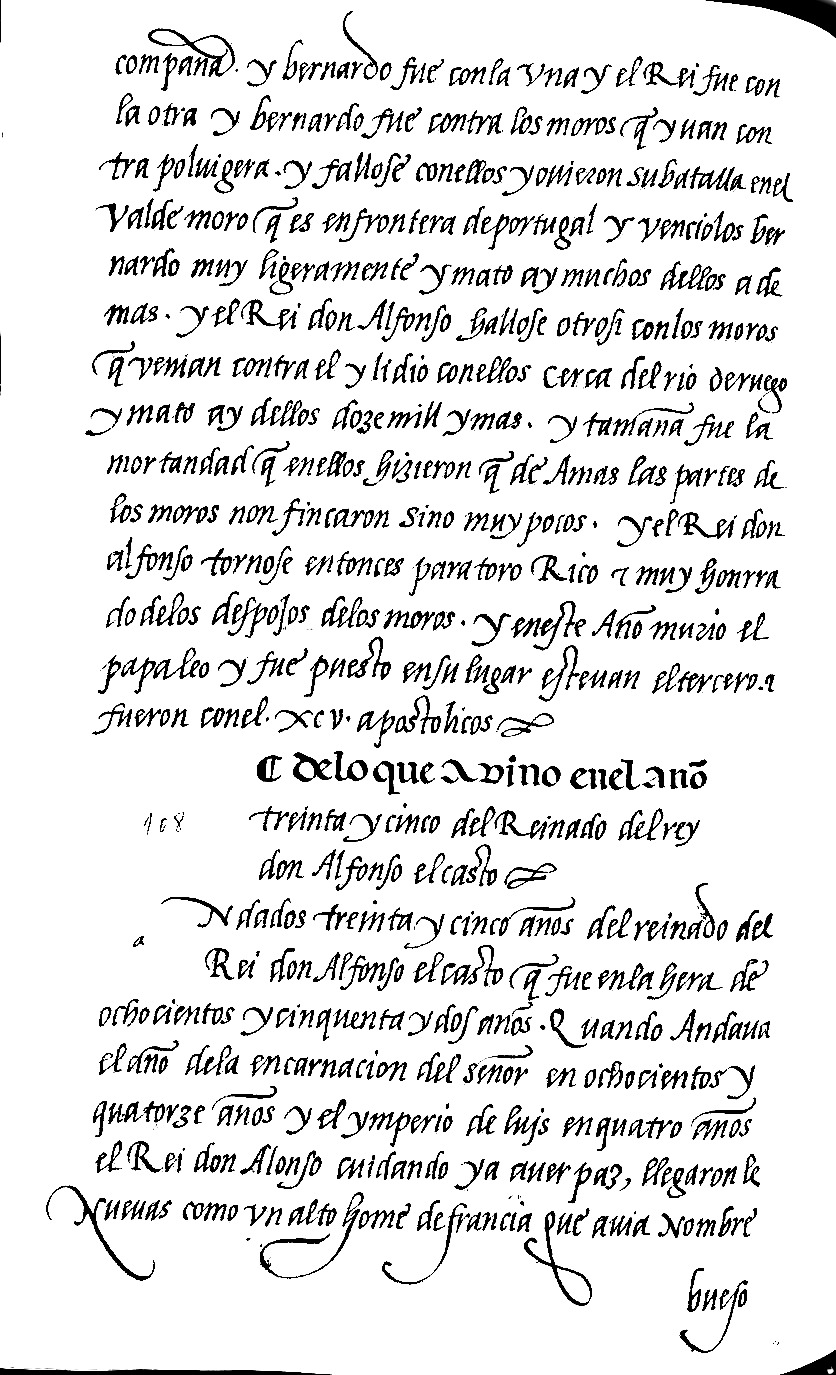 compaña. y bernardo fue conla vna y el Rei fue con
la otra y bernardo fue contra los moros q̃ yuan con
tra poluigera. y fallose conellos y ouieron su batalla enel
Val de moro q̃ es enfrontera de portugal y venciolos ber
nardo muy ligeramente y mato ay muchos dellos a de
mas. y el Rei don Alfonso hallose otrosi conlos moros
q̃ venian contra el y lidio conellos cerca del rio deruego
y mato ay dellos doze mill y mas. y tamaña fue la
mortandad q̃ enellos hizieron q̃ de Amas las partes de
los moros non fincaron sino muy pocos. y el Rei don
alfonso tornose entonces para toro Rico ꞇ muy honrra
do delos despojos delos moros. y eneste Año murio el
papa leo y fue puesto ensu lugar esteuan el tercero. ꞇ
fueron conel. xcv. apostolicos
¶ delo que avino enel año
108
treinta y cinco del Reinado del rey
don Alfonso el casto
a
Ndados treinta y cinco años del reinado del
Rei don Alfonso el casto q̃ fue enla hera de
ochocientos y cinquenta y dos años. Quando Andaua
el año dela encarnacion del señor en ochocientos y
quatorze años y el ymperio de luis en quatro años
el Rei don Alonso cuidando ya auer paz, llegaron le
Nueuas como vn alto home de francia que auia Nombre
bueso